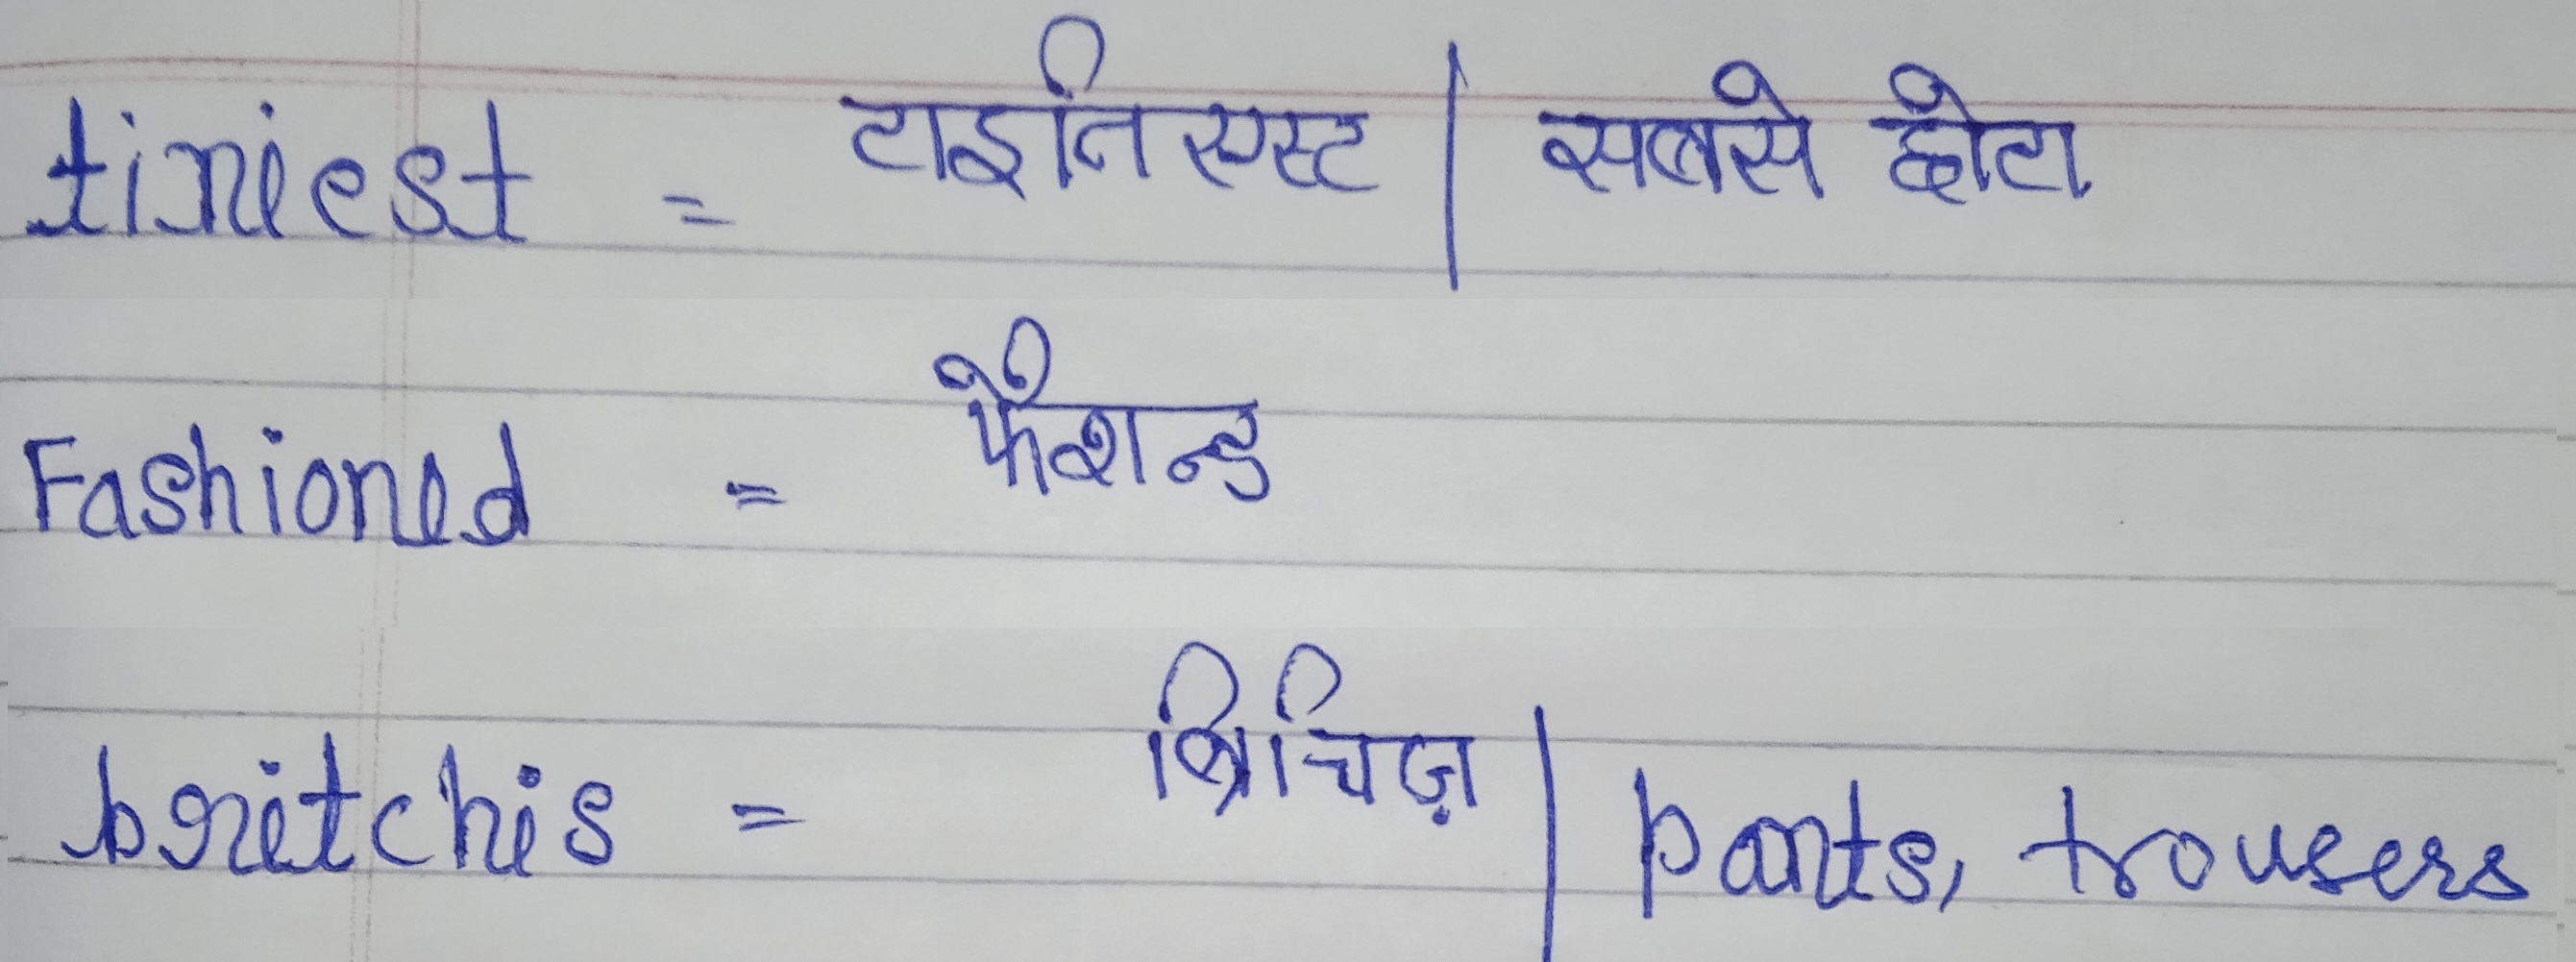 tiniest = टाइनिएस्ट | सबसे छोटा
Fashioned = फैशन्ड
britchis = ब्रिचिज़ | pants, trousers